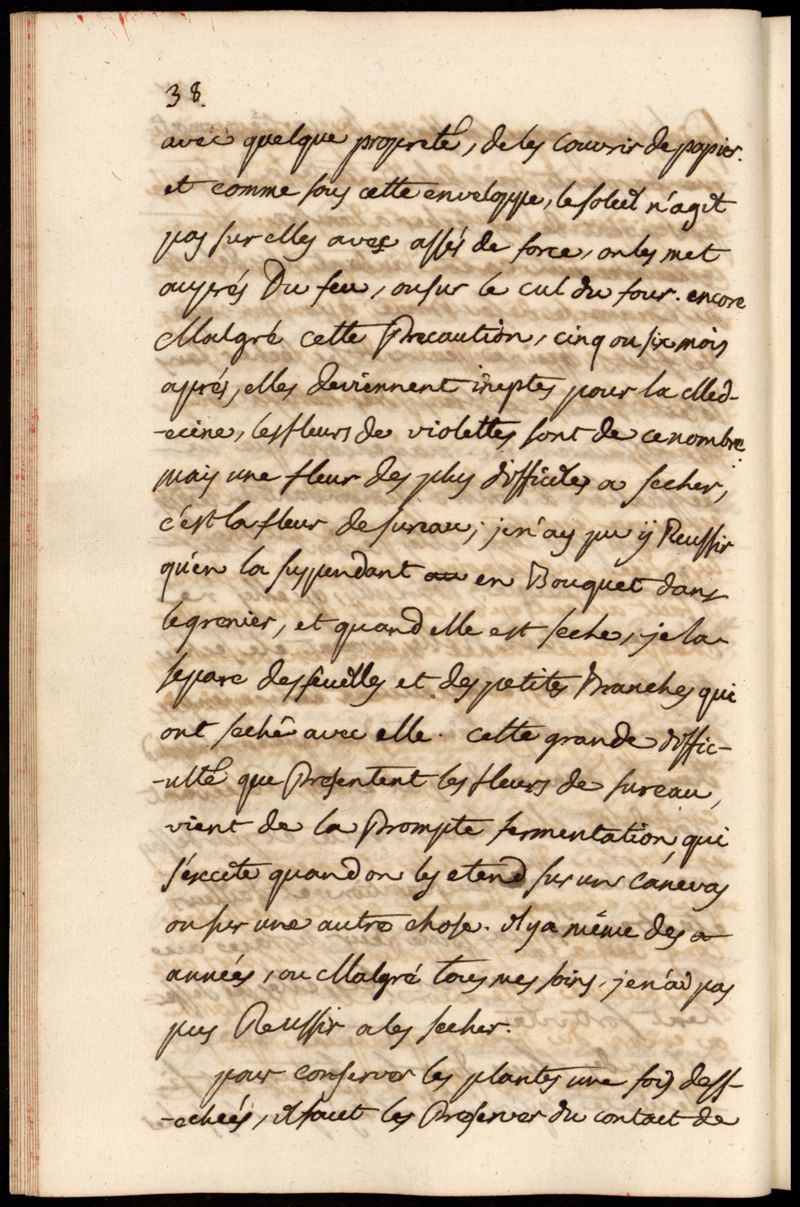 38.
avec quelque propreté, de les couvrir de papier.
et comme sous cette enveloppe, le soleil n'agit
pas sur elles avec assés de force, on les met
auprés Du feu, ou sur le cul du four. encore
Malgré cette Precaution, cinq ou six mois
aprés, elles deviennent ineptes pour la Med-
-ecine, les fleurs de violettes sont de ce nombre
mais une fleur des plus difficiles a secher,
c'est la fleur de sureau; je n'ay pu ÿ Reussir
qu'en la suspendant en Bouquet dans
le grenier, et quand elle est seche, je la
separe des feuilles et des petites Branches qui
ont seché avec elle. Cette grande diffic-
-ulté que Presentent les fleurs de sureau,
vient de la Prompte fermentation, qui
s'excite quand on les etend sur un Canevas
ou sur une autre chose. il y a même des
années, ou Malgré tous mes soins, je n'ai pas
pus Reussir a les secher.
pour conserver les plantes une fois dess-
-echéés, il faut les Preserver du contact de